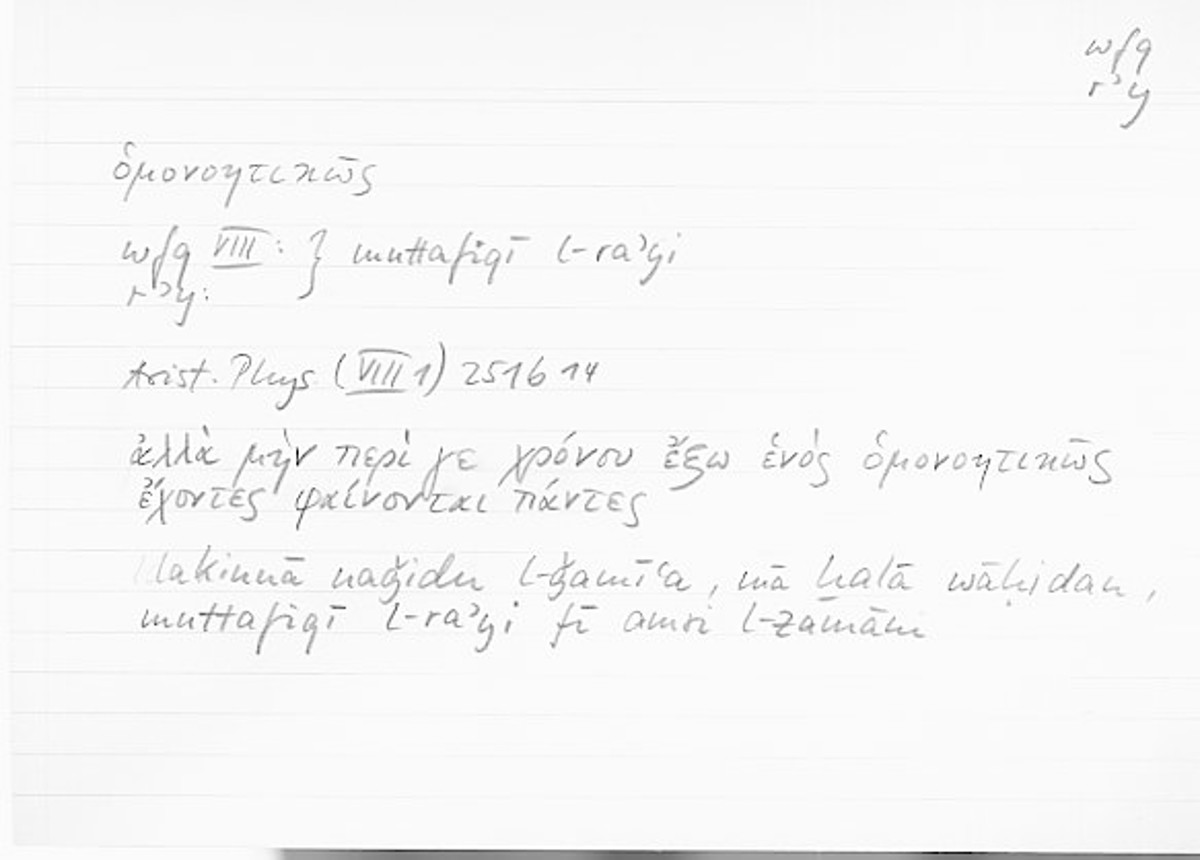 wfq
rʾy
ὁμονοητικῶς
wfq VIII: } muttafiqī l-raʾyi
rʾy:
Arist. Phys (VIII 1) 251b 14
ἀλλὰ μὴν περὶ γε χρόνου ἔξω ἑνὸς ὁμονοητικῶς
ἔχοντες φαίνονται πάντες
lakinnā naǧidu l-ǧamīʿa, mā ḫalā wāḥidan,
muttafiqī l-raʾyi fī amri l-zamāni